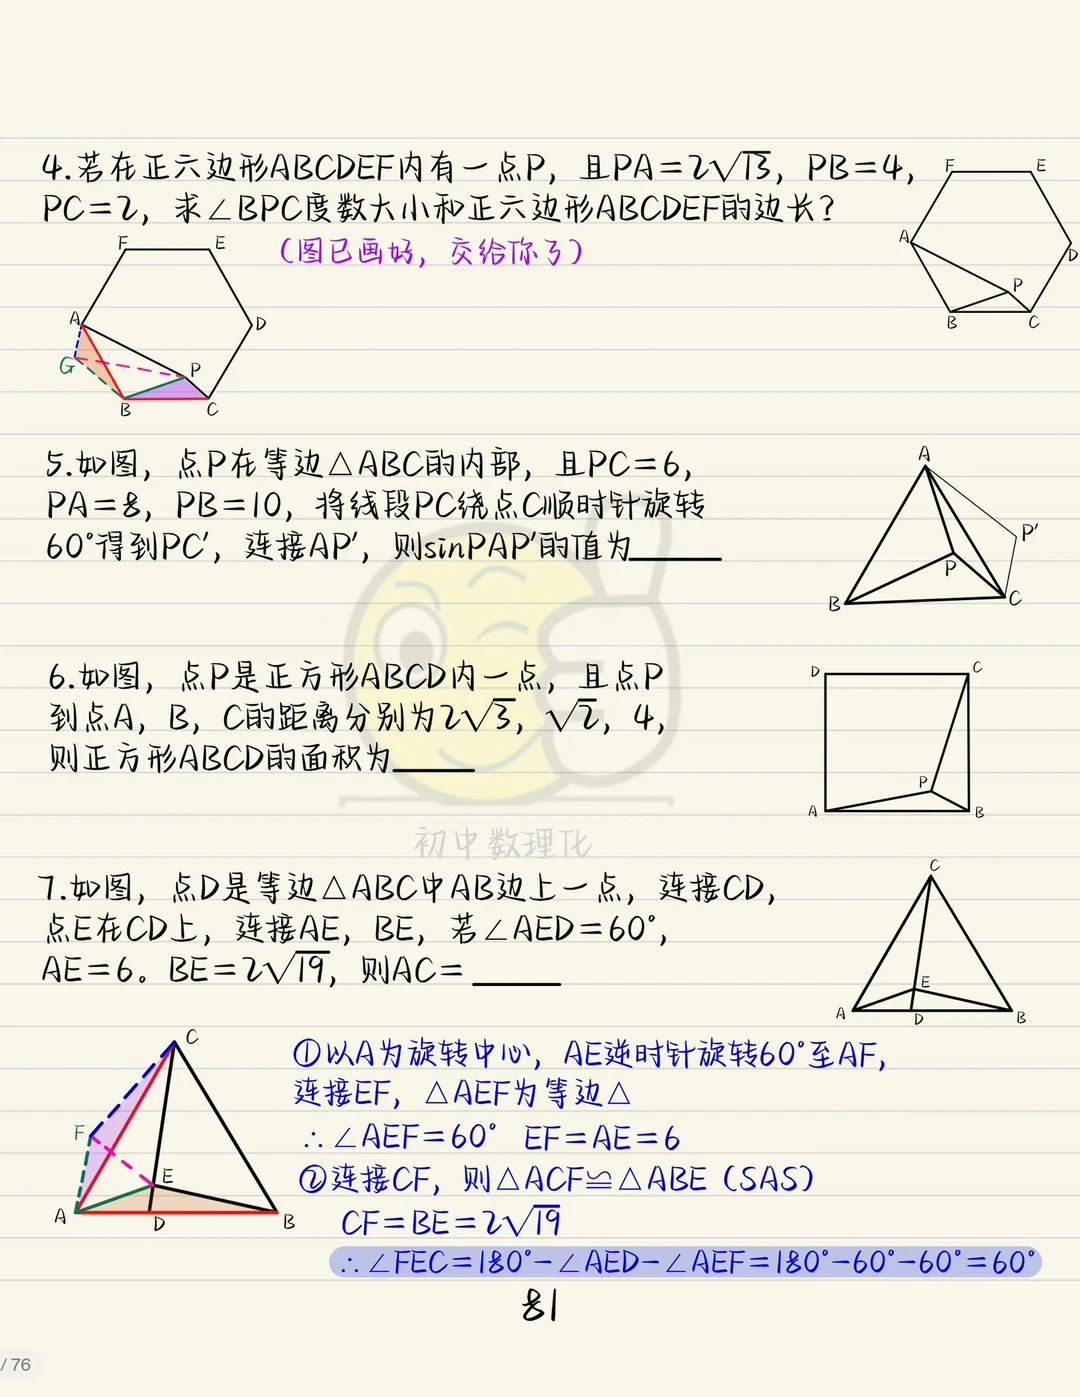 4.若在正六边形ABCDEF内有一点P，且PA=2√13，PB=4，
PC=2，求∠BPC度数大小和正六边形ABCDEF的边长？
（图已画好，交给你了）
F E
A
D
P
B C
F E
A
D
G
P
B C
5.如图，点P在等边△ABC的内部，且PC=6，
PA=8，PB=10，将线段PC绕点C顺时针旋转
60°得到PC′，连接AP′，则sinPAP′的值为
A
P′
P
B C
6.如图，点P是正方形ABCD内一点，且点P
到点A，B，C的距离分别为2√3，√2，4，
则正方形ABCD的面积为
D C
P
A B
初中数理化
7.如图，点D是等边△ABC中AB边上一点，连接CD，
点E在CD上，连接AE，BE，若∠AED=60°，
AE=6。BE=2√19，则AC=
C
E
A D B
C
F
E
A D B
①以A为旋转中心，AE逆时针旋转60°至AF，
连接EF，△AEF为等边△
∴∠AEF=60° EF=AE=6
②连接CF，则△ACF≌△ABE（SAS）
CF=BE=2√19
∴∠FEC=180°-∠AED-∠AEF=180°-60°-60°=60°
81
/ 76